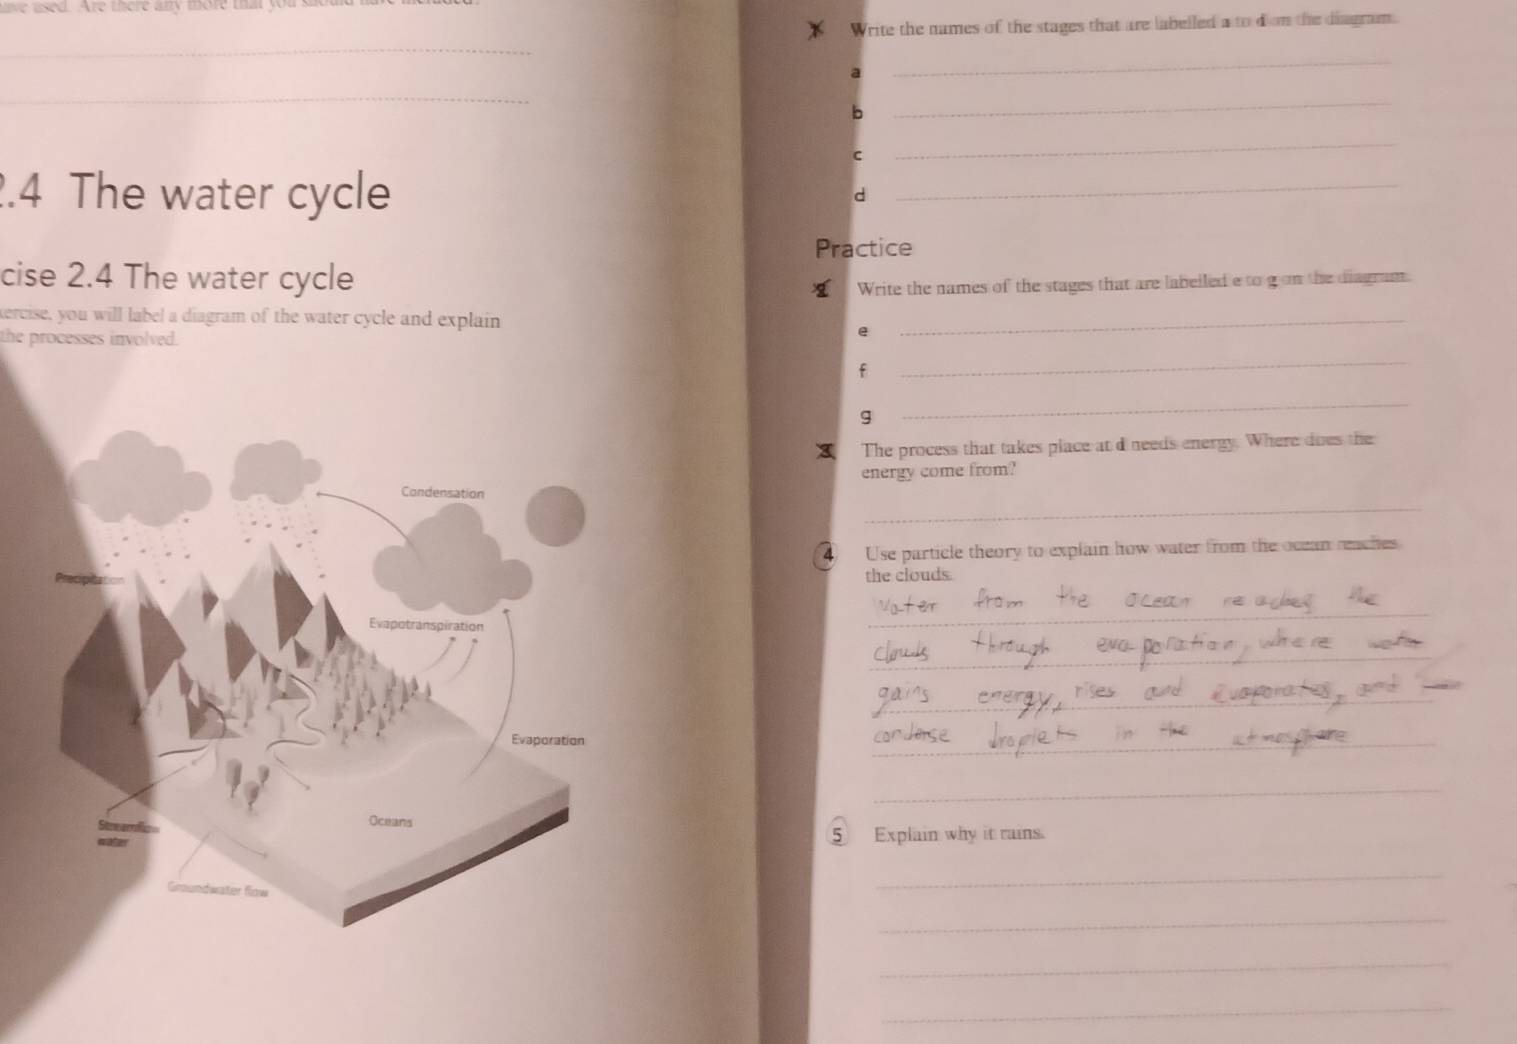 have used. Are there any more that you should have included?
2.4 The water cycle
cise 2.4 The water cycle
ercise, you will label a diagram of the water cycle and explain
the processes involved.
Condensation
Precipitation
Evapotranspiration
Evaporation
Oceans
Streamflow
water
Groundwater flow
Write the names of the stages that are labelled a to d on the diagram.
a
b
c
d
Practice
Write the names of the stages that are labelled e to g on the diagram.
e
f
g
The process that takes place at d needs energy. Where does the
energy come from?
4 Use particle theory to explain how water from the ocean reaches
the clouds.
Water from the ocean reaches the
clouds through evaporation, where water
gains energy, rises and evaporates, and
condense droplets in the atmosphere
5 Explain why it rains.